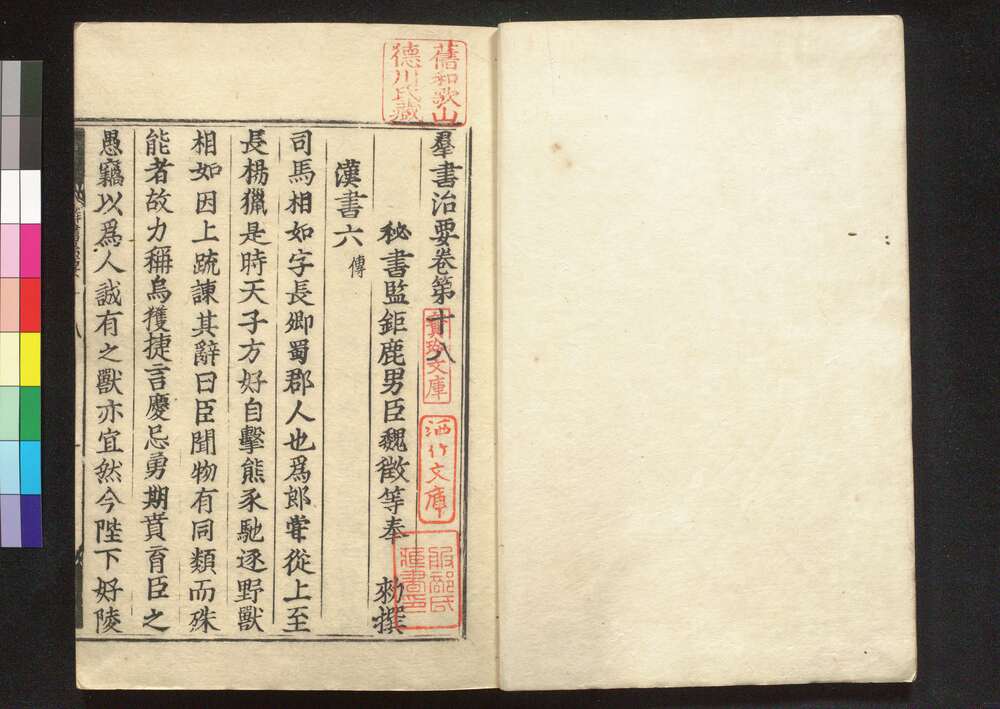 羣書治要卷第十八
秘書監鉅鹿男臣魏徵等奉 勑撰
漢書六 傳
司馬相如字長卿蜀郡人也爲郎甞從上至
長楊獵是時天子方好自擊熊豕馳逐野獸
相如因上䟽諫其辭曰臣聞物有同類而殊
能者故力稱烏獲捷言慶忌勇期賁育臣之
愚竊以爲人誠有之獸亦宜然今陛下好陵
舊和歌山
德川氏藏
文庫
酒竹文庫
服部氏
藏書印